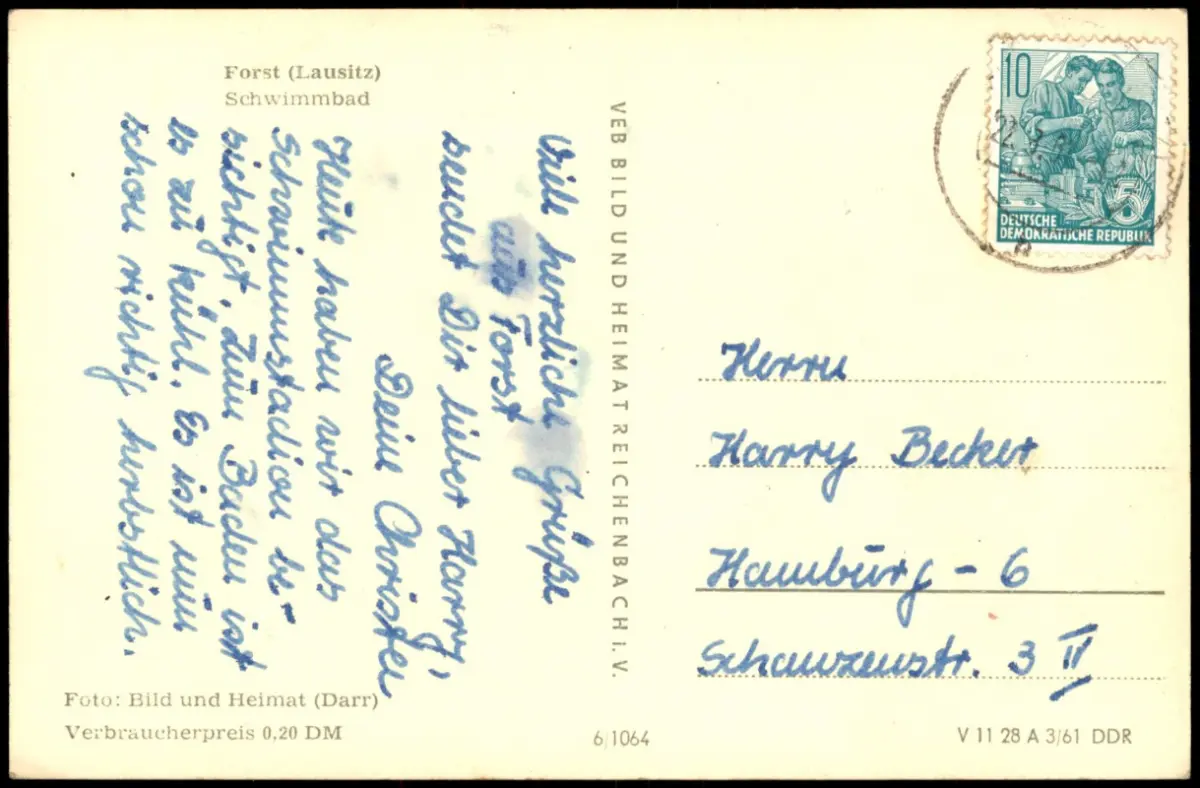 Forst (Lausitz)
Schwimmbad
Viele herzliche Grüße
aus Forst
sendet Dir lieber Harry,
Deine Christel
Heute haben wir das
Schwimmstadion be-
sichtigt. Zum Baden ist
es zu kühl. Es ist nun
schon richtig herbstlich.
Foto: Bild und Heimat (Darr)
Verbraucherpreis 0,20 DM
VEB BILD UND HEIMAT REICHENBACH i. V.
6/1064
10
5
DEUTSCHE
DEMOKRATISCHE REPUBLIK
Herrn
Harry Becker
Hamburg - 6
Schanzenstr. 3 II
V 11 28 A 3/61 DDR